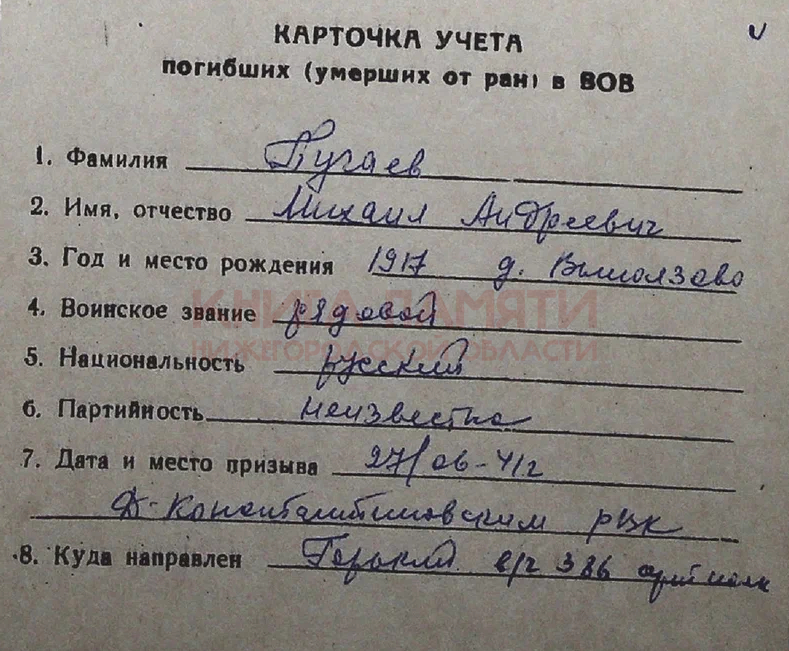 КАРТОЧКА УЧЕТА
погибших (умерших от ран) в ВОВ
1. Фамилия Пугаев
2. Имя, отчество Михаил Андреевич
3. Год и место рождения 1917 д.
КНИГА ПАМЯТИ
4. Воинское звание рядовой
НИЖЕГОРОДСКОЙ ОБЛАСТИ
5. Национальность русский
6. Партийность неизвестно
7. Дата и место призыва 27/06-41г
Д-Константиновским РВК
8. Куда направлен Горький в/ч 386 арт полк